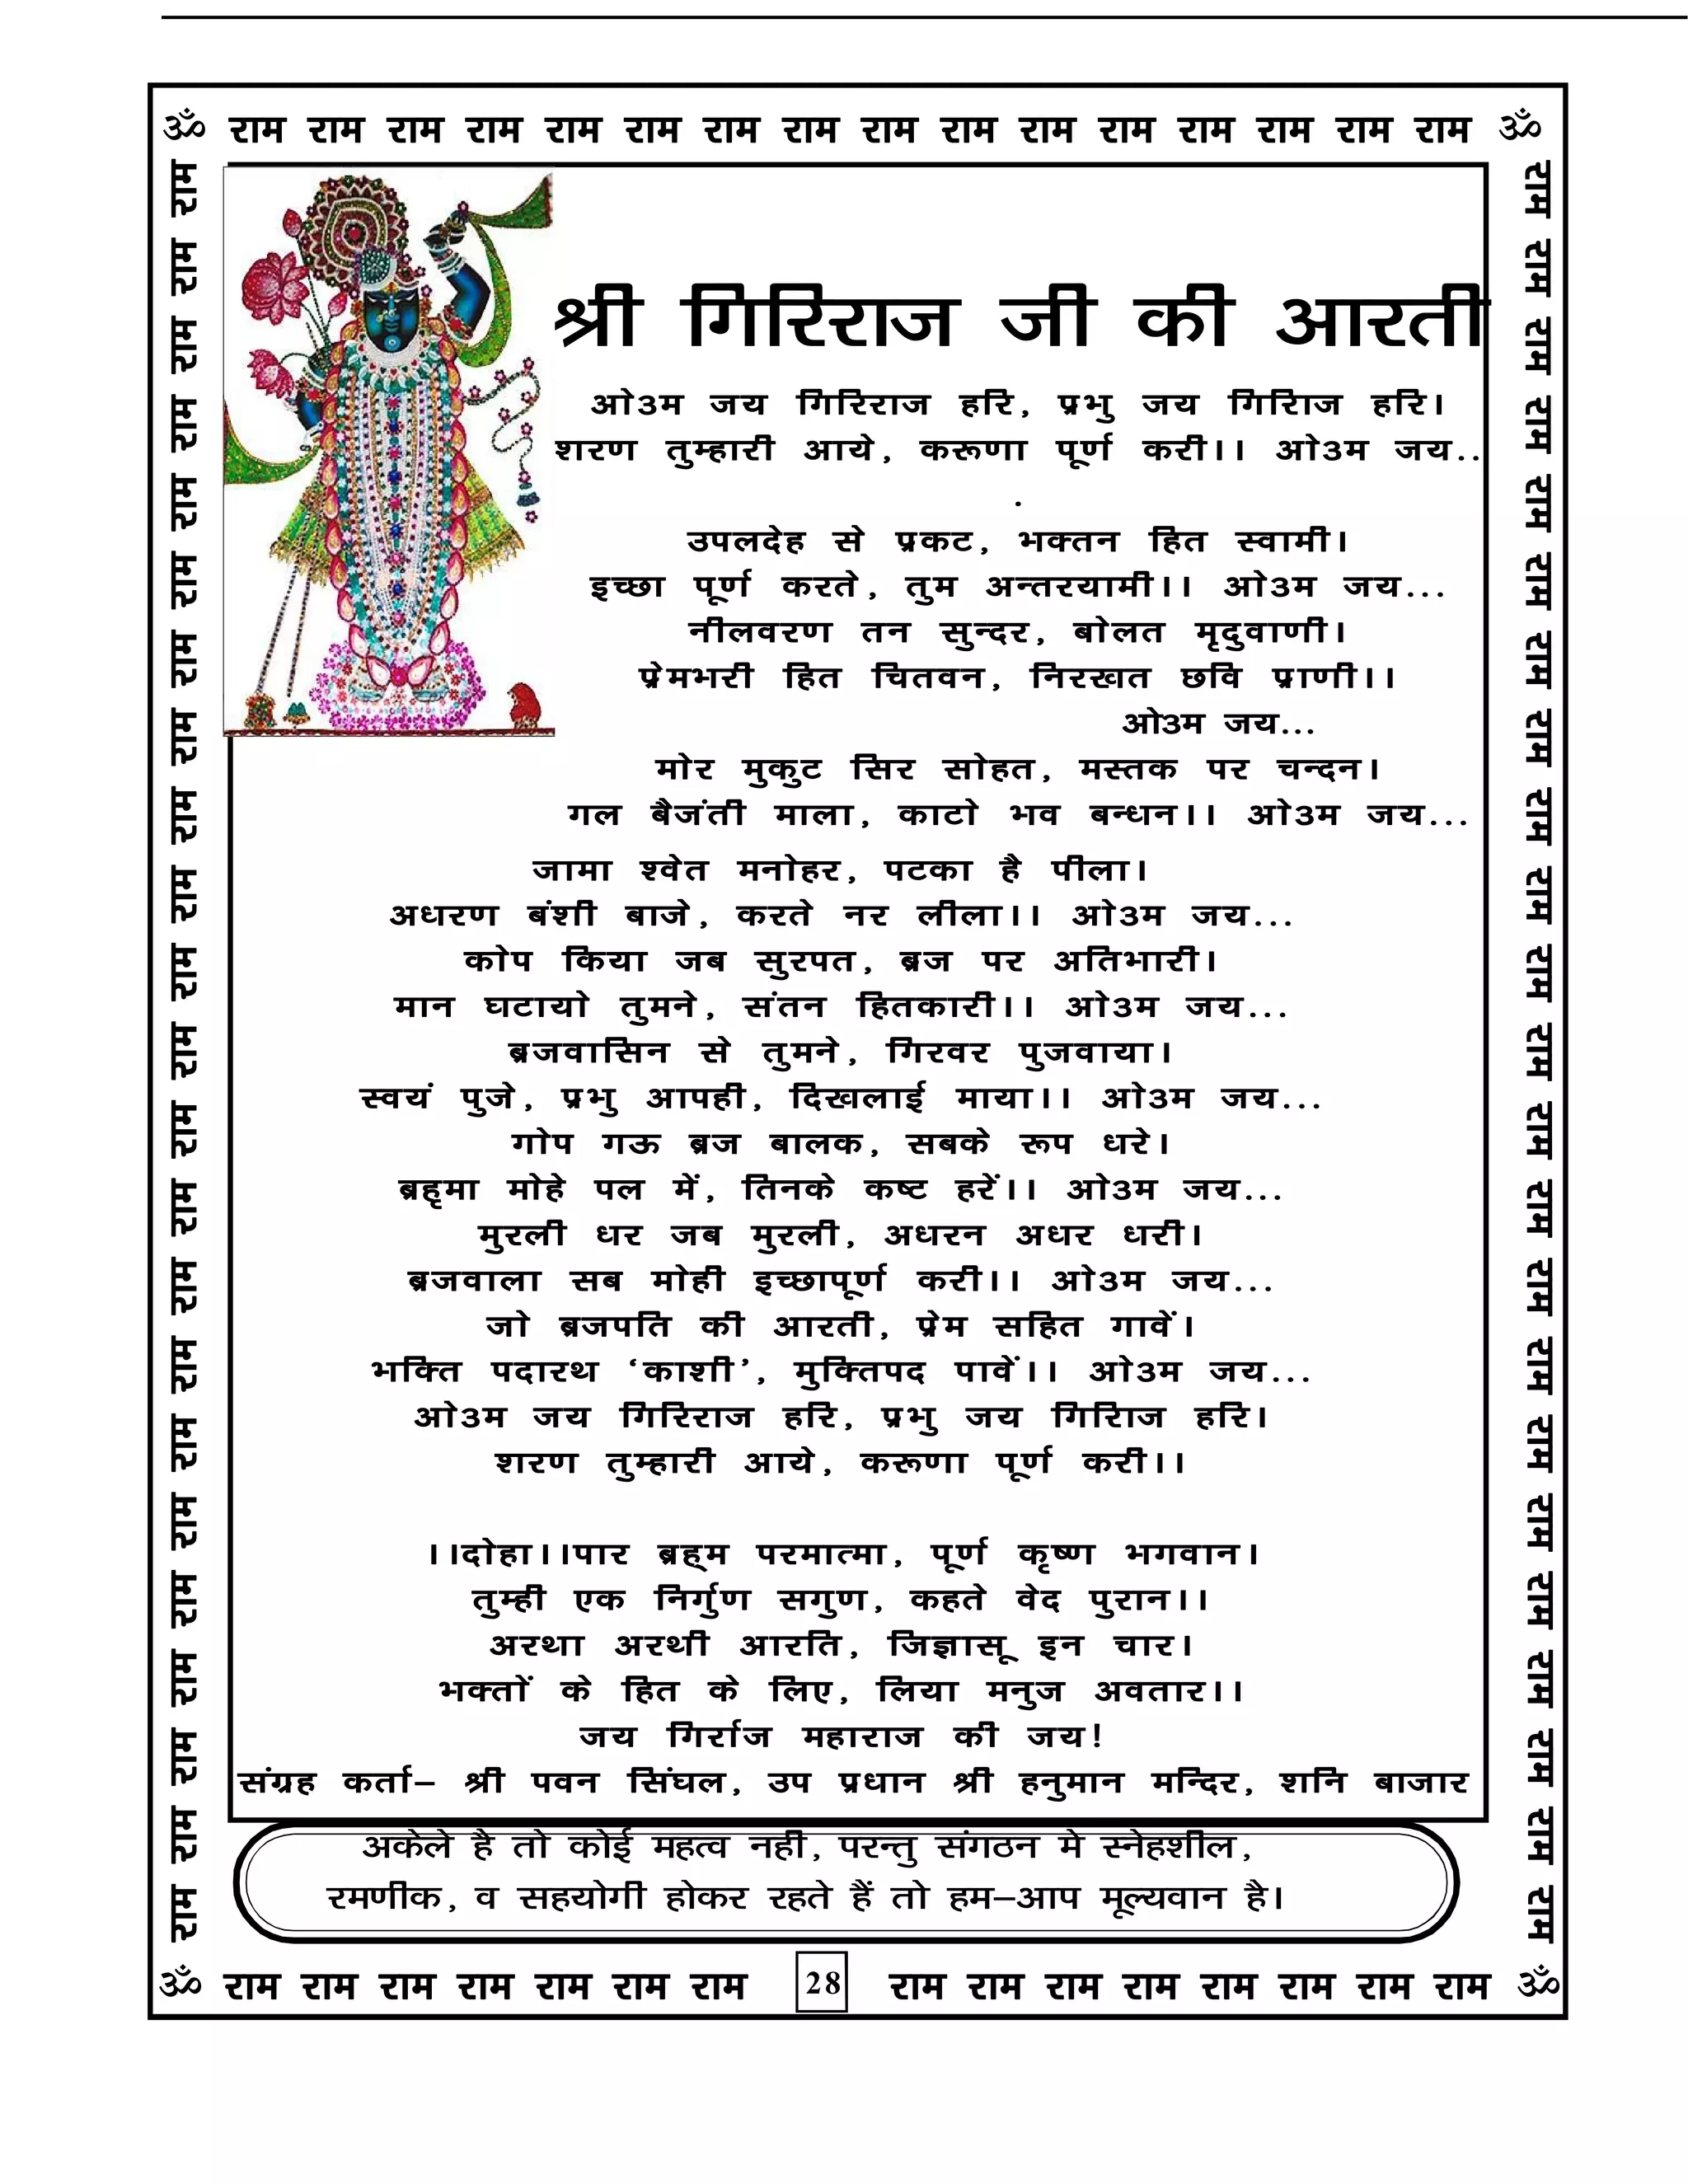 ॐ राम राम राम राम राम राम राम राम राम राम राम राम राम राम राम राम ॐ
राम राम राम राम राम राम राम राम राम राम राम राम राम राम राम राम राम राम राम राम राम राम राम
राम राम राम राम राम राम राम राम राम राम राम राम राम राम राम राम राम राम राम राम राम राम राम
श्री गिरिराज जी की आरती
ओ3म जय गिरिराज हरि, प्रभु जय गिरिाज हरि।
शरण तुम्हारी आये, करूणा पूर्ण करी।। ओ3म जय..
.
उपलदेह से प्रकट, भक्तन हित स्वामी।
इच्छा पूर्ण करते, तुम अन्तरयामी।। ओ3म जय...
नीलवरण तन सुन्दर, बोलत मृदुवाणी।
प्रेमभरी हित चितवन, निरखत छवि प्राणी।।
ओ3म जय...
मोर मुकुट सिर सोहत, मस्तक पर चन्दन।
गल बैजंती माला, काटो भव बन्धन।। ओ3म जय...
जामा श्वेत मनोहर, पटका है पीला।
अधरण बंशी बाजे, करते नर लीला।। ओ3म जय...
कोप किया जब सुरपत, ब्रज पर अतिभारी।
मान घटायो तुमने, संतन हितकारी।। ओ3म जय...
ब्रजवासिन से तुमने, गिरवर पुजवाया।
स्वयं पुजे, प्रभु आपही, दिखलाई माया।। ओ3म जय...
गोप गऊ ब्रज बालक, सबके रूप धरे।
ब्रहृमा मोहे पल में, तिनके कष्ट हरें।। ओ3म जय...
मुरली धर जब मुरली, अधरन अधर धरी।
ब्रजवाला सब मोही इच्छापूर्ण करी।। ओ3म जय...
जो ब्रजपति की आरती, प्रेम सहित गावें।
भक्ति पदारथ ‘काशी’, मुक्तिपद पावें।। ओ3म जय...
ओ3म जय गिरिराज हरि, प्रभु जय गिरिाज हरि।
शरण तुम्हारी आये, करूणा पूर्ण करी।।
।।दोहा।।पार ब्रह्म परमात्मा, पूर्ण कृष्ण भगवान।
तुम्ही एक निर्गुण सगुण, कहते वेद पुरान।।
अरथा अरथी आरति, जिज्ञासू इन चार।
भक्तों के हित के लिए, लिया मनुज अवतार।।
जय गिर्राज महाराज की जय!
संग्रह कर्ता– श्री पवन सिंघल, उप प्रधान श्री हनुमान मन्दिर, शनि बाजार
अकेले है तो कोई महत्व नहीं, परन्तु संगठन मे स्नेहशील,
रमणीक, व सहयोगी होकर रहते हैं तो हम–आप मूल्यवान है।
ॐ राम राम राम राम राम राम राम 28 राम राम राम राम राम राम राम राम ॐ